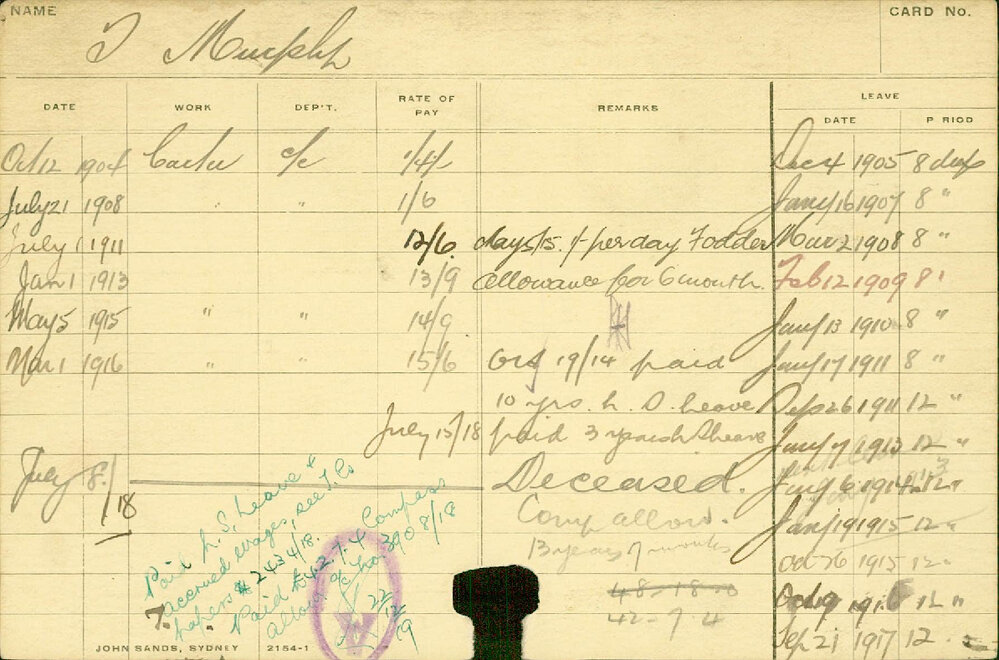 NAME
CARD No.
T Murphy
DATE WORK DEP'T. RATE OF PAY REMARKS LEAVE
DATE P RIOD
Oct 12 1904 Carter c/c 1/4/- Dec 4 1905 8 days
July 21 1908 " " 1/6 Jany 16 1907 8 "
July 1 1911 12/6 days/5. /- per day Fodder Mar 2 1908 8 "
Jan 1 1913 13/9 allowance for 6 month. Feb 12 1909 8 "
May 5 1915 " " 14/9 Jany 13 1910 8 "
Mar 1 1916 " " 15/6 Oct 19/14 paid Jany 17 1911 8 "
10 yrs. L. S. Leave Sep 26 1911 12 "
July 15/18 paid 3 Leave Jany 7 1913 12 "
July 8/18 Deceased. 6 1914 12 "
Comp allow. Jan 19 1915 12 "
13 years 7 months Oct 26 1915 12 "
48-18-0 Oct 9 1916 12 "
42-7-4 Sep 21 1917 12 "
Paid L. S. Leave &
accrued wages, see T. Cs
papers # 2434/18.
Paid £42.7.4 Compass
allow. c/c No. 3908/18
22/12/19
T.
JOHN SANDS, SYDNEY 2154-1